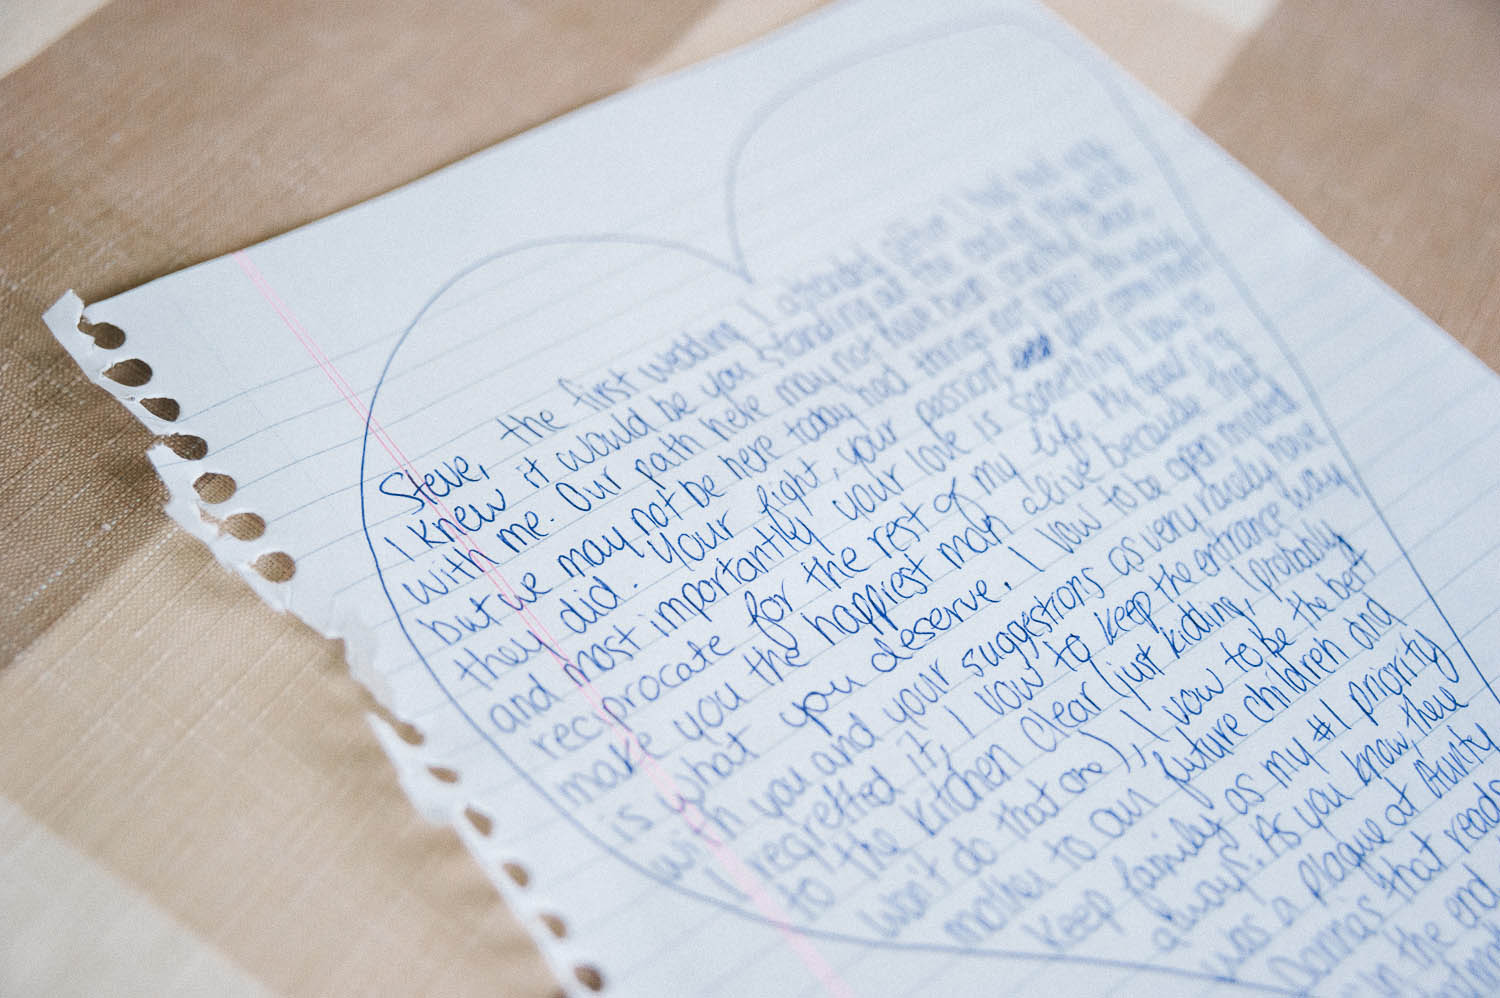 Steve, the first wedding I attended after I met you
I knew it would be you standing at the end of the aisle
with me. Our path here may not have been smooth one,
but we may not be here today had things not gone the way
they did. Your fight, your passion, and your
and most importantly your love is something I vow to
reciprocate for the rest of my life. My goal is to
make you the happiest man alive because that
is what you deserve. I vow to be open minded
with you and your suggestions as very rarely have
I regretted it, I vow to keep the entrance way
to the kitchen clear (just kidding, I probably
won't do that one), I vow to be the best
mother to our future children and
keep family as my #1 priority
always. As you know, there
was a plaque at Aunty
Donna's that reads
in the end